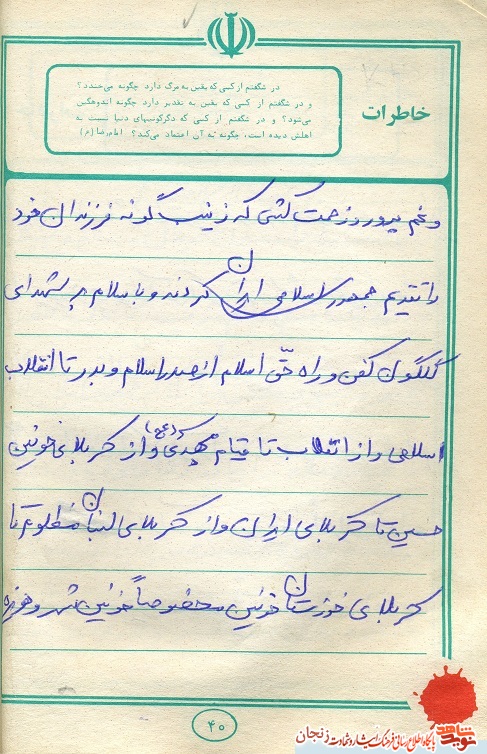 خاطرات
در شگفتم از کسی که یقین به مرگ دارد چگونه می‌خندد؟
و در شگفتم از کسی که یقین به تقدیر دارد چگونه اندوهگین
می‌شود؟ و در شگفتم از کسی که دگرگونیهای دنیا نسبت به
اهلش دیده است، چگونه به آن اعتماد می‌کند؟ امام رضا (ع)
و غم پرور و زحمت کشی که زینب گونه فرزندان خود
را تقدیم جمهوری اسلامی ایران کردند و با سلام بر شهدای
گلگون کفن و راه حق اسلام از صدر اسلام و بدر تا انقلاب
اسلامی و از انقلاب تا قیام مهدی (عج) و از کربلای خونین
حسین تا کربلای ایران و از کربلای لبنان مظلوم تا
کربلای خوزستان خونین مخصوصاً خونین شهر و هویزه
۴۰
نوید شاهد
پایگاه اطلاع رسانی فرهنگ ایثار و شهادت زنجان